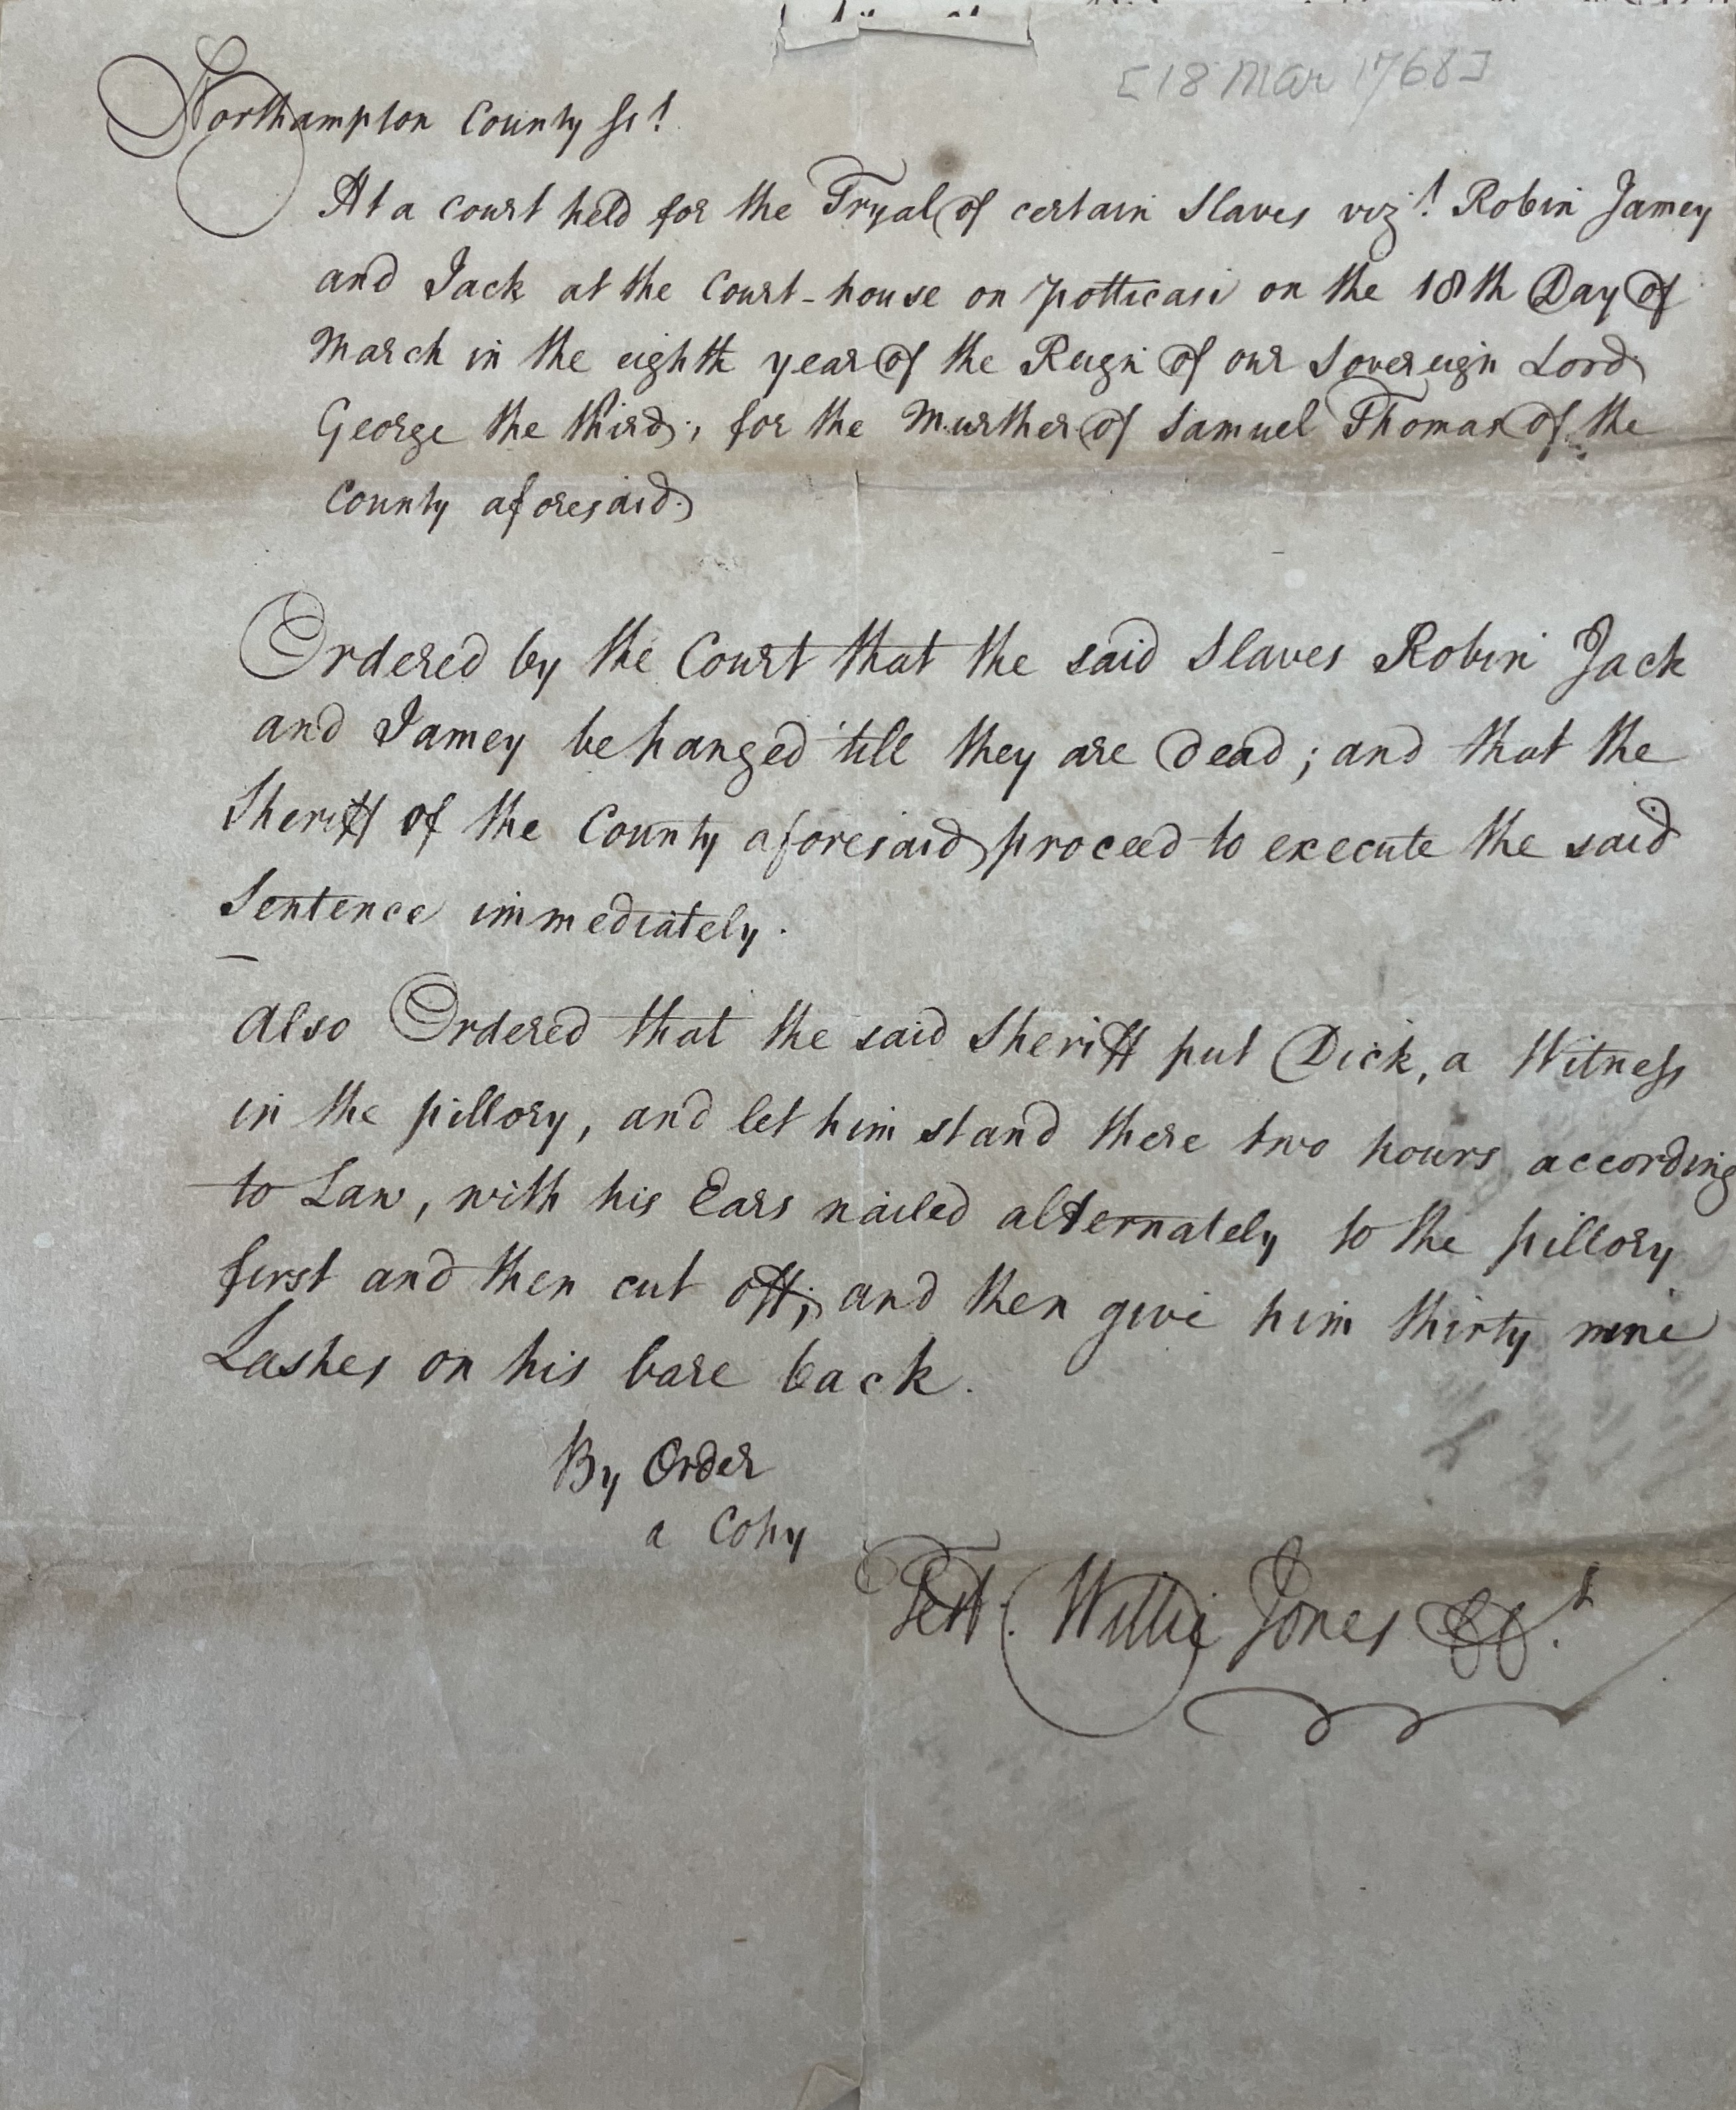 [18 Mar 1768]
Northampton County Sct.
At a Court held for the Tryal of certain Slaves vizt. Robin Jamey
and Jack at the Court-house on Potticasi on the 18th Day of
March in the eighth year of the Reign of our Sovereign Lord
George the third, for the Murther of Samuel Thomas of the
County aforesaid.
Ordered by the Court that the said Slaves Robin Jack
and Jamey be hanged 'till they are dead; and that the
Sheriff of the County aforesaid proceed to execute the said
Sentence immediately.
Also Ordered that the said Sheriff put Dick, a Witness
in the pillory, and let him stand there two hours according
to Law, with his Ears nailed alternately to the pillory
first and then cut off; and then give him thirty nine
Lashes on his bare back.
By Order
a Copy
Test. Willie Jones